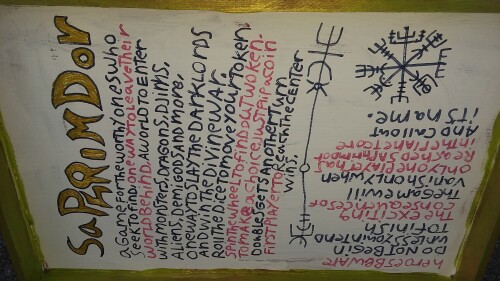 SaPHRIMDor
a Game for the worthy ones who
seek to find one way to leave their
world behind. A world to enter
with monsters, dragons, DJinns,
Aliens, Demigods and more,
one way to slay the dark lords
and win the divine war.
Roll the dice to move your token.
Spin the wheel to find out
to make a choice, just flip a coin.
gets another turn
First player to reach the center
wins.
heroes Beware
Do not Begin
unless you intend
to finish
The exciting
consequences of
the game will
vanish only when
only one player has
Reached
in the Planet core
And call out
its name.